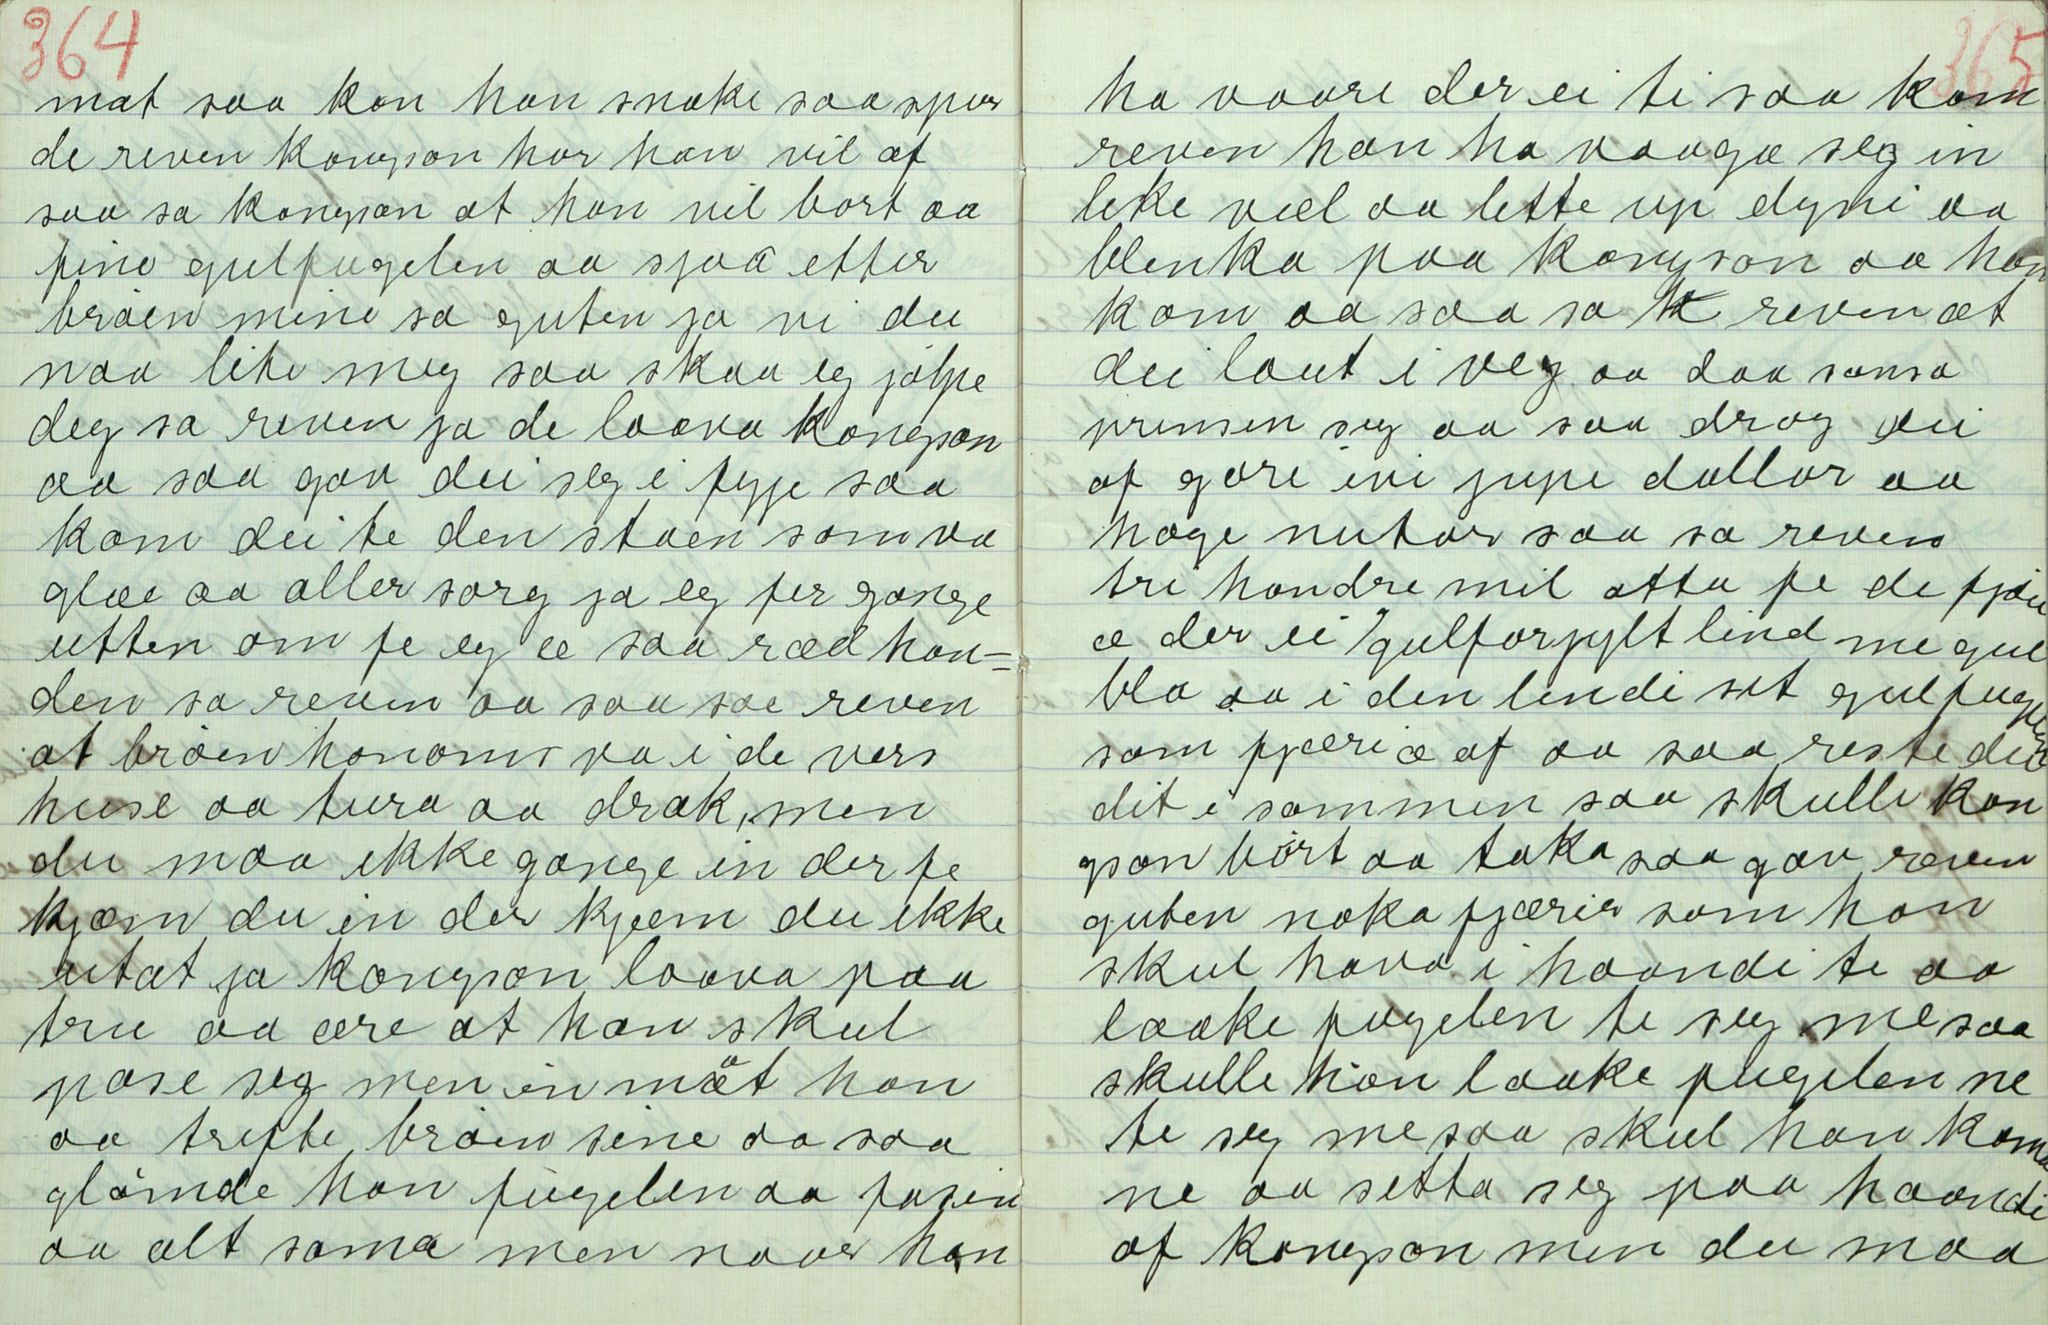 364
mat saa kan han snake saa spur
de reven kongson hor han vil af
saa sa kongson at han vil bort aa
fine gulfugelen aa sjaa etter
bröen mine sa guten ja vi du
naa lite meg saa skaa eg jölpe
deg sa reven ja de laava kongson
aa saa gav dei seg i fygje saa
kom dei te den staen som va
glæe aa aller sorg ja eg fer gange
utten om fe eg æ saa ræd hon=
den sa reven aa saa sae reven
at bröen honoms va i de vers
huse aa tura aa drak, men
du maa ikke gange in der fe
kjæm du in der kjæm du ikke
utat ja kongson laava paa
tru aa ære at han skul
pase seg men in maat han
aa trefte bröen sine aa saa
glömde han fugelen aa fasin
aa alt sama men naar han
365
ha vaare der ei ti saa kom
reven han ha vaaga seg in
like væl aa lette up dyni aa
blenka paa kongson aa han
kom aa saa sa reven at
dei laut i veg aa daa sansa
prinsen seg aa saa drog dei
af gare ivi jupe dallar aa
höge nutar saa sa reven
tri hondre mil atta fe de fjæu
æ der ei gulforgylt lind me gul
bla aa i den lindi sit gulfugelen
som fjæri æ af aa saa reste dei
dit i sammen saa skulle kon
gson bört aa taka saa gav ræven
guten noka fjærir som han
skul hava i haandi te aa
laake fugelen te seg me saa
skulle han laake fugelen ne
te seg me saa skul han koma
ne aa setta seg paa haandi
af kongson men du maa